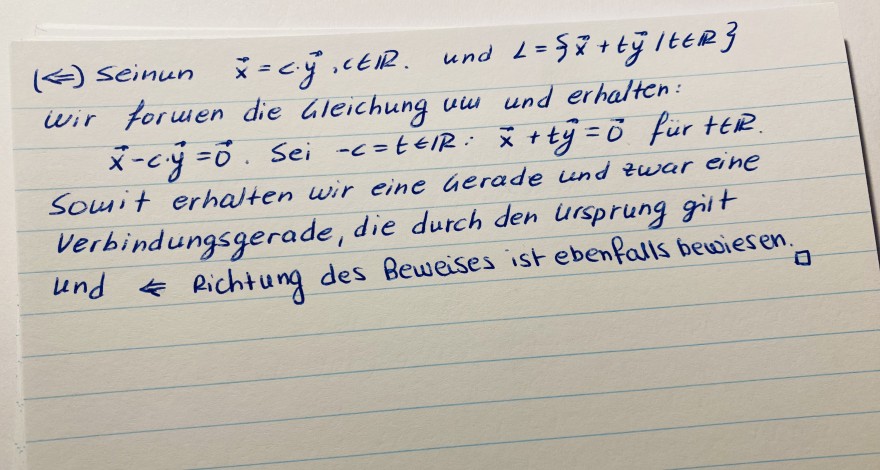 (⇐) Seinun x⃗ = c·y⃗ , c∈ℝ. und L = {x⃗ + ty⃗ / t∈ℝ}
wir formen die Gleichung um und erhalten:
x⃗ - c·y⃗ = 0⃗ . Sei -c = t ∈ ℝ : x⃗ + ty⃗ = 0⃗ für t∈ℝ.
Somit erhalten wir eine Gerade und zwar eine
Verbindungsgerade, die durch den Ursprung gilt
und ⇐ Richtung des Beweises ist ebenfalls bewiesen. □